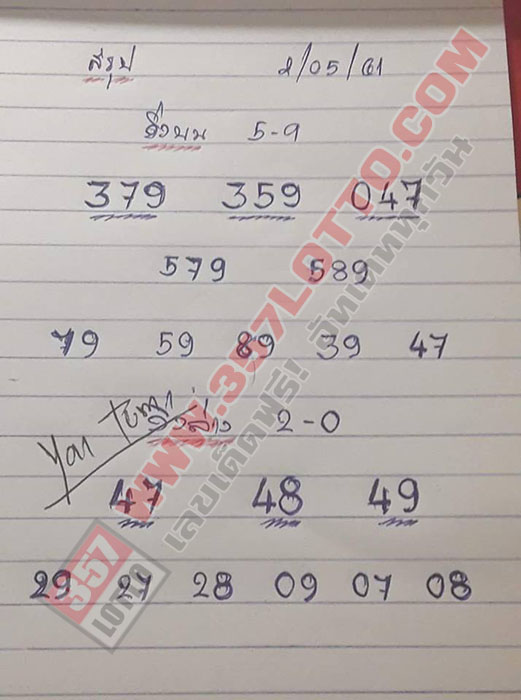 สรุป 2/05/61
วิ่งบน 5-9
379 359 047
579 589
79 59 89 39 47
วิ่งล่าง 2-0
47 48 49
29 27 28 09 07 08
WWW.357LOTTO.COM
เลขเด็ดฟรี! อัพเดททุกวัน
357
LOTTO